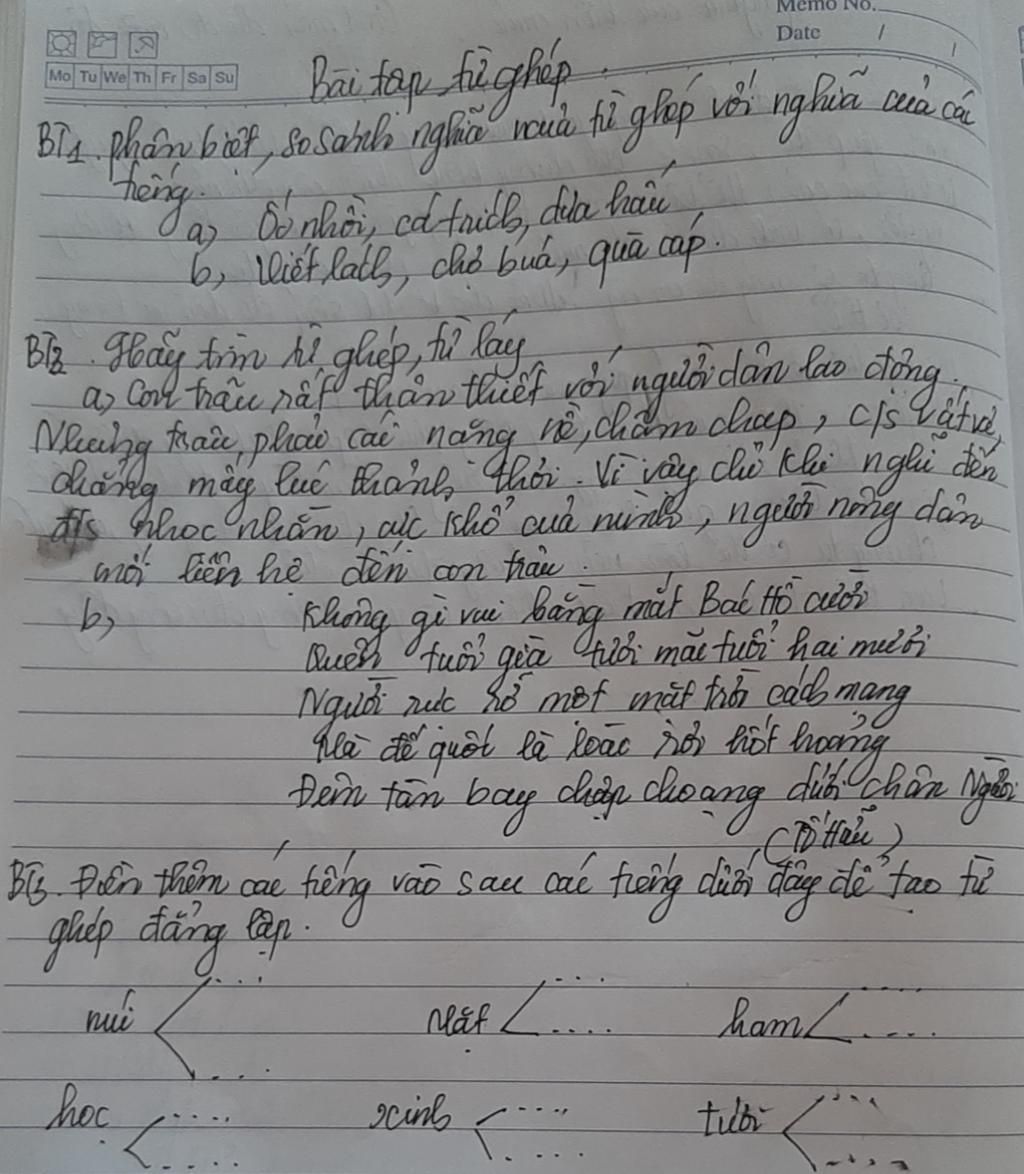 Memo No.
Date / /
Mo Tu We Th Fr Sa Su
Bài tập từ ghép.
BT1. Phân biệt, so sánh nghĩa của từ ghép với nghĩa của các
tiếng.
a, Ốc nhồi, cá trích, dưa hấu
b, Viết lách, chợ búa, quà cáp.
BT2. Hãy tìm từ ghép, từ láy
a, Con trâu rất thân thiết với người dân lao động.
Nhưng trâu phải cái nặng nề, chậm chạp, c/s vất vả,
chẳng mấy lúc thảnh thơi. Vì vậy chỉ khi nghĩ đến
đ/s nhọc nhằn, cực khổ của mình, người nông dân
mới liên hệ đến con trâu.
b, Không gì vui bằng mắt Bác Hồ cười
Quên tuổi già tươi mãi tuổi hai mươi
Người rực rỡ một mặt trời cách mạng
Mà đế quốc là loài dơi hốt hoảng
Đêm tàn bay chập choạng dưới chân Người
(Tố Hữu)
BT3. Điền thêm các tiếng vào sau các tiếng dưới đây để tạo từ
ghép đẳng lập.
núi < .... .... mặt < .... .... ham < .... ....
học < .... .... xinh < .... .... tươi < .... ....